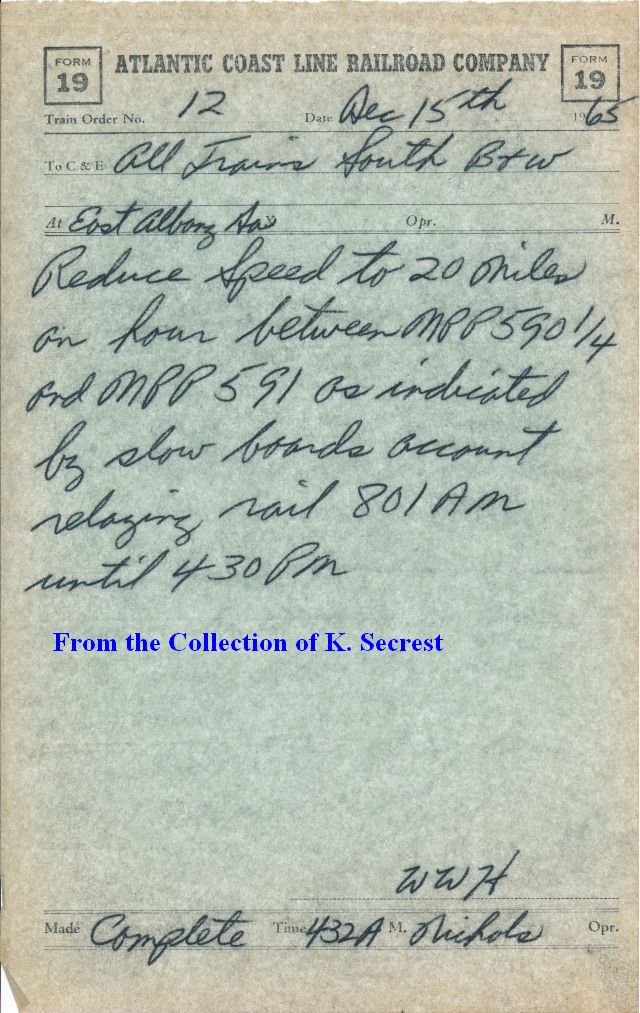 FORM 19
ATLANTIC COAST LINE RAILROAD COMPANY
FORM 19
Train Order No. 12 Date Dec 15th 1965
To C & E All Trains South B&W
At East Albany Ga Opr. M.
Reduce Speed to 20 miles
an hour between MPP 590 1/4
and MPP 591 as indicated
by slow boards account
relaying rail 801 AM
until 430 PM
From the Collection of K. Secrest
WWH
Made Complete Time 432A M. Nichols Opr.